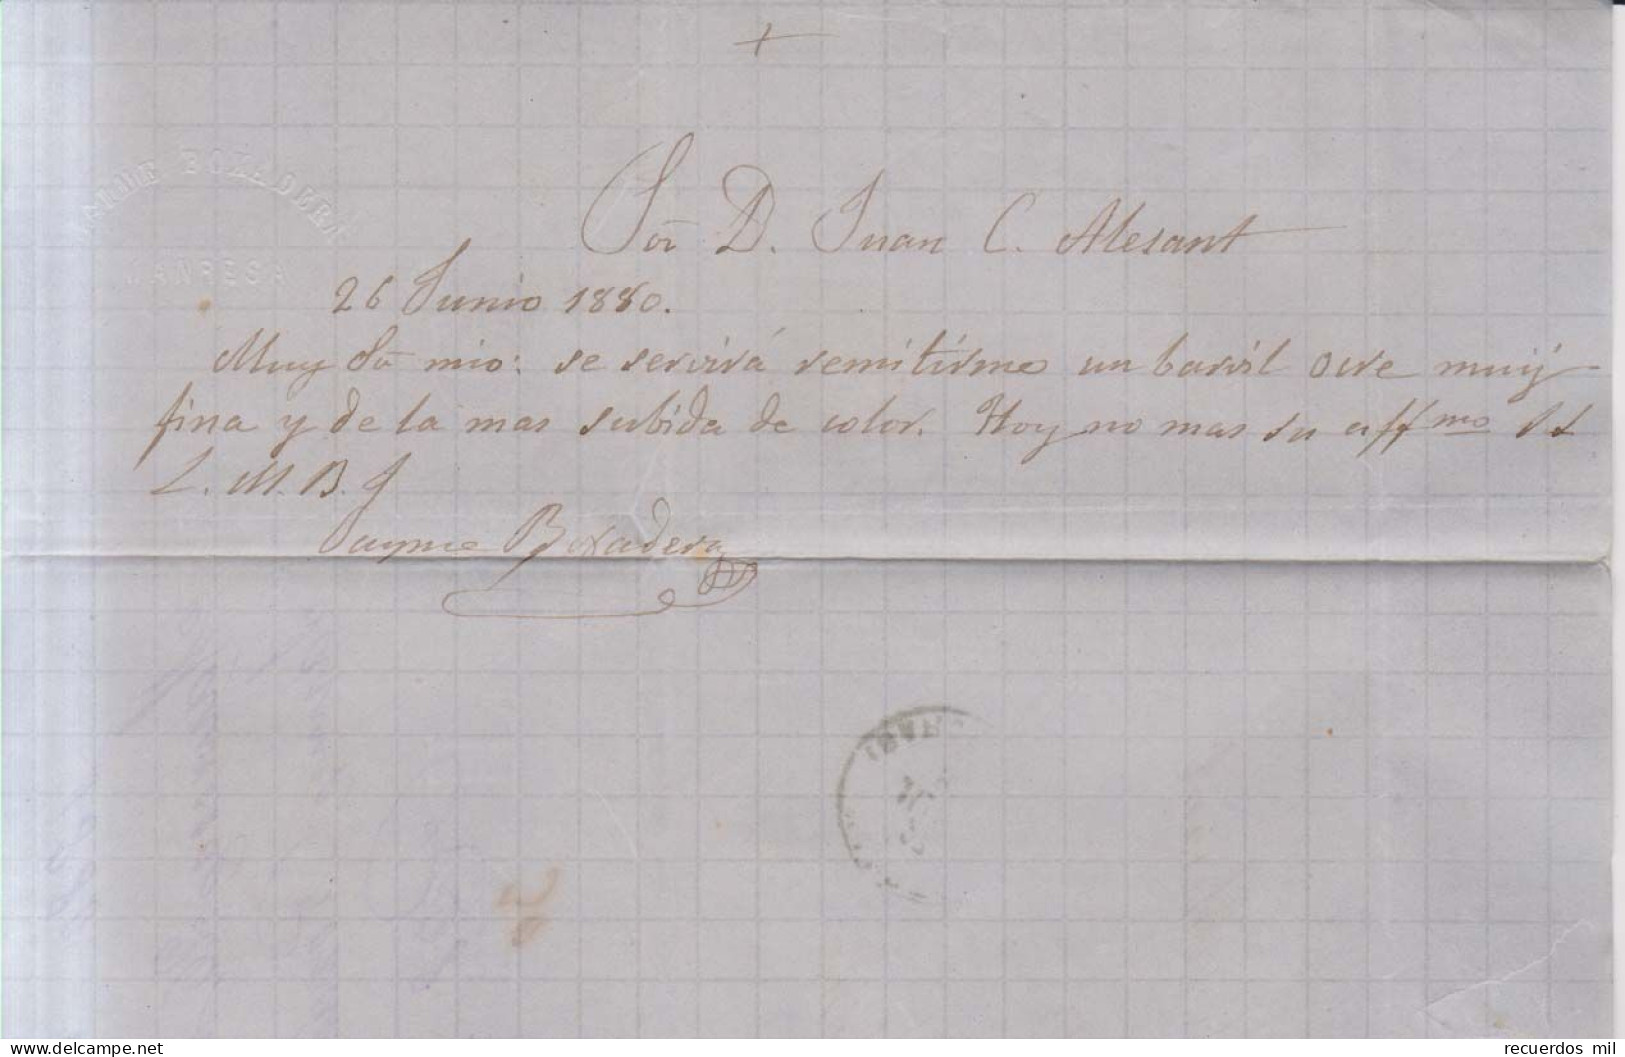 JAIME BOXADERA
MANRESA
Sor D. Juan C. Alesant
26 Junio 1880.
Muy Sor mio: se servirá remitirme un barril ocre muy
fina y de la mas subida de color. Hoy no mas su affmo
L. M. B.
Jayme Boxadera
recuerdos mil